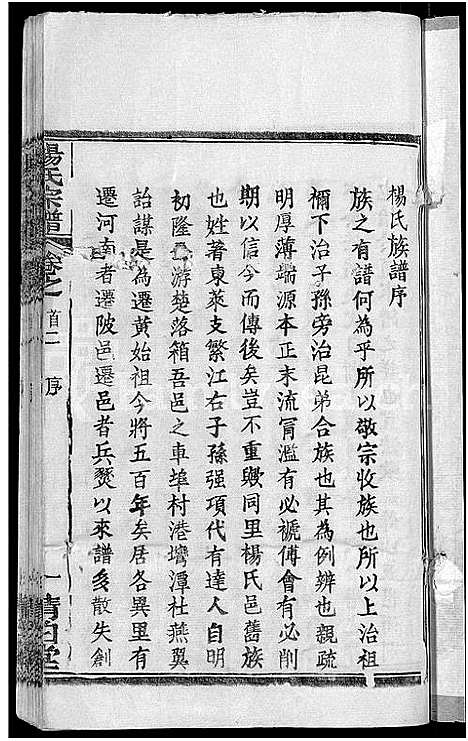 楊氏族譜序
族之有譜何為乎所以敬宗收族也所以上治祖
禰下治子孫旁治昆弟合族也其為例辨也親疏
明厚薄端源本正末流甯濫有必褫傅會有必削
期以信今而傳後矣豈不重歟同里楊氏邑舊族
也姓著東萊支繁江右子孫强項代有達人自明
初隆 游楚落箱吾邑之車埠村港壪潭社燕翼
詒謀是為遷黄始祖今將五百年矣居各異里有
遷河南者遷陂邑遷邑者兵燹以來譜多散失創
楊氏宗譜
卷之首二
序
一
清白堂